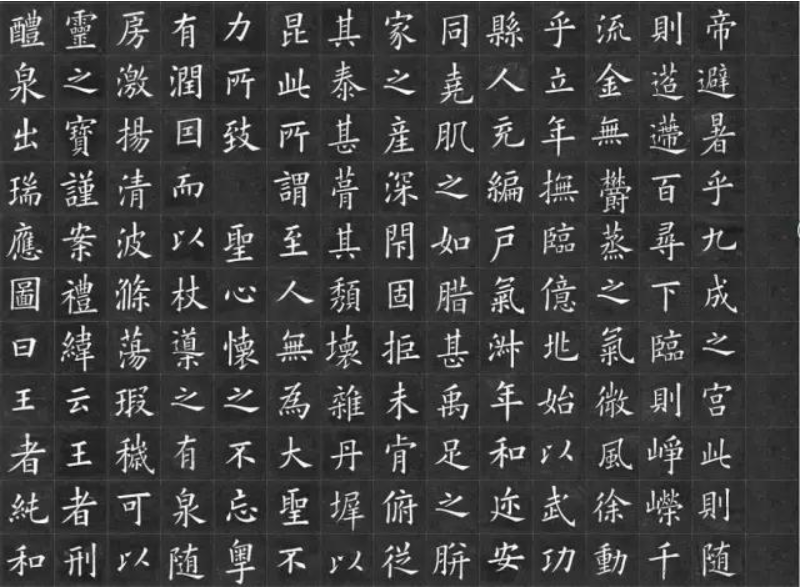 帝避暑乎九成之宫此則随
則迢遰百尋下臨則崢嶸千
流金無欝蒸之氣微風徐動
乎立年撫臨億兆始以武功
縣人充編戸氣淑年和迩安
同堯肌之如腊甚禹足之胼
家之産深閇固拒未肯俯従
其泰甚葺其頹壞雜丹墀以
昆此所謂至人無為大聖不
力所致 聖心懷之不忘粤
有潤囙而以杖導之有泉随
房激揚清波滌蕩瑕穢可以
靈之寶謹案禮緯云王者刑
醴泉出瑞應圖曰王者純和